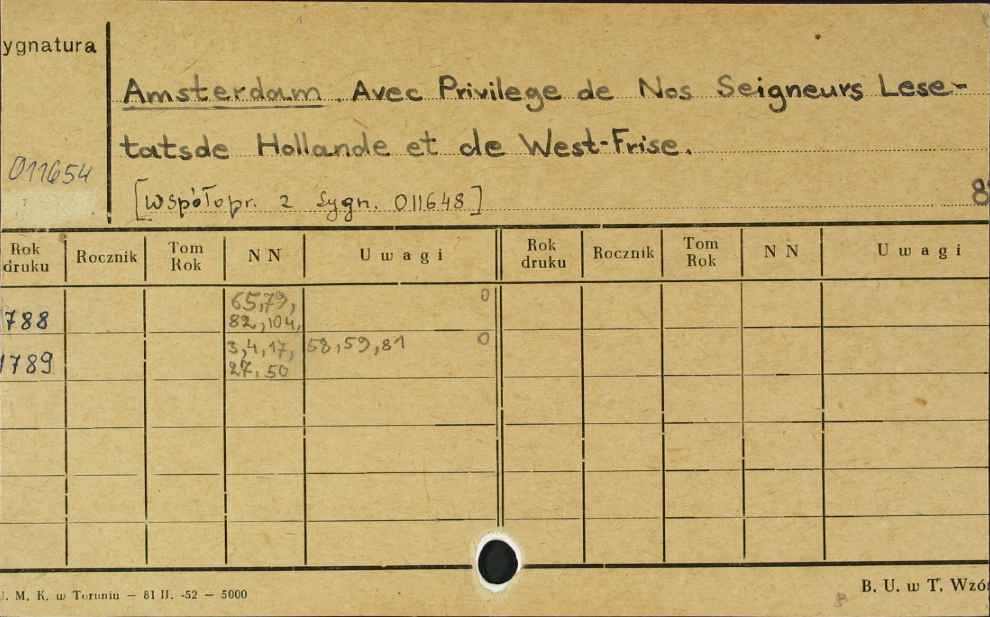 ygnatura
Amsterdam. Avec Privilege de Nos Seigneurs Lese-
tatsde Hollande et de West-Frise.
011654
[Współopr. z sygn. 011648]
8
Rok druku Rocznik Tom Rok NN Uwagi Rok druku Rocznik Tom Rok NN Uwagi
788 65,79, 0
82,104,
1789 3,4,17, 58,59,81 0
27,50
J. M. K. w Toruniu — 81 II. -52 — 5000
B. U. w T. Wzó